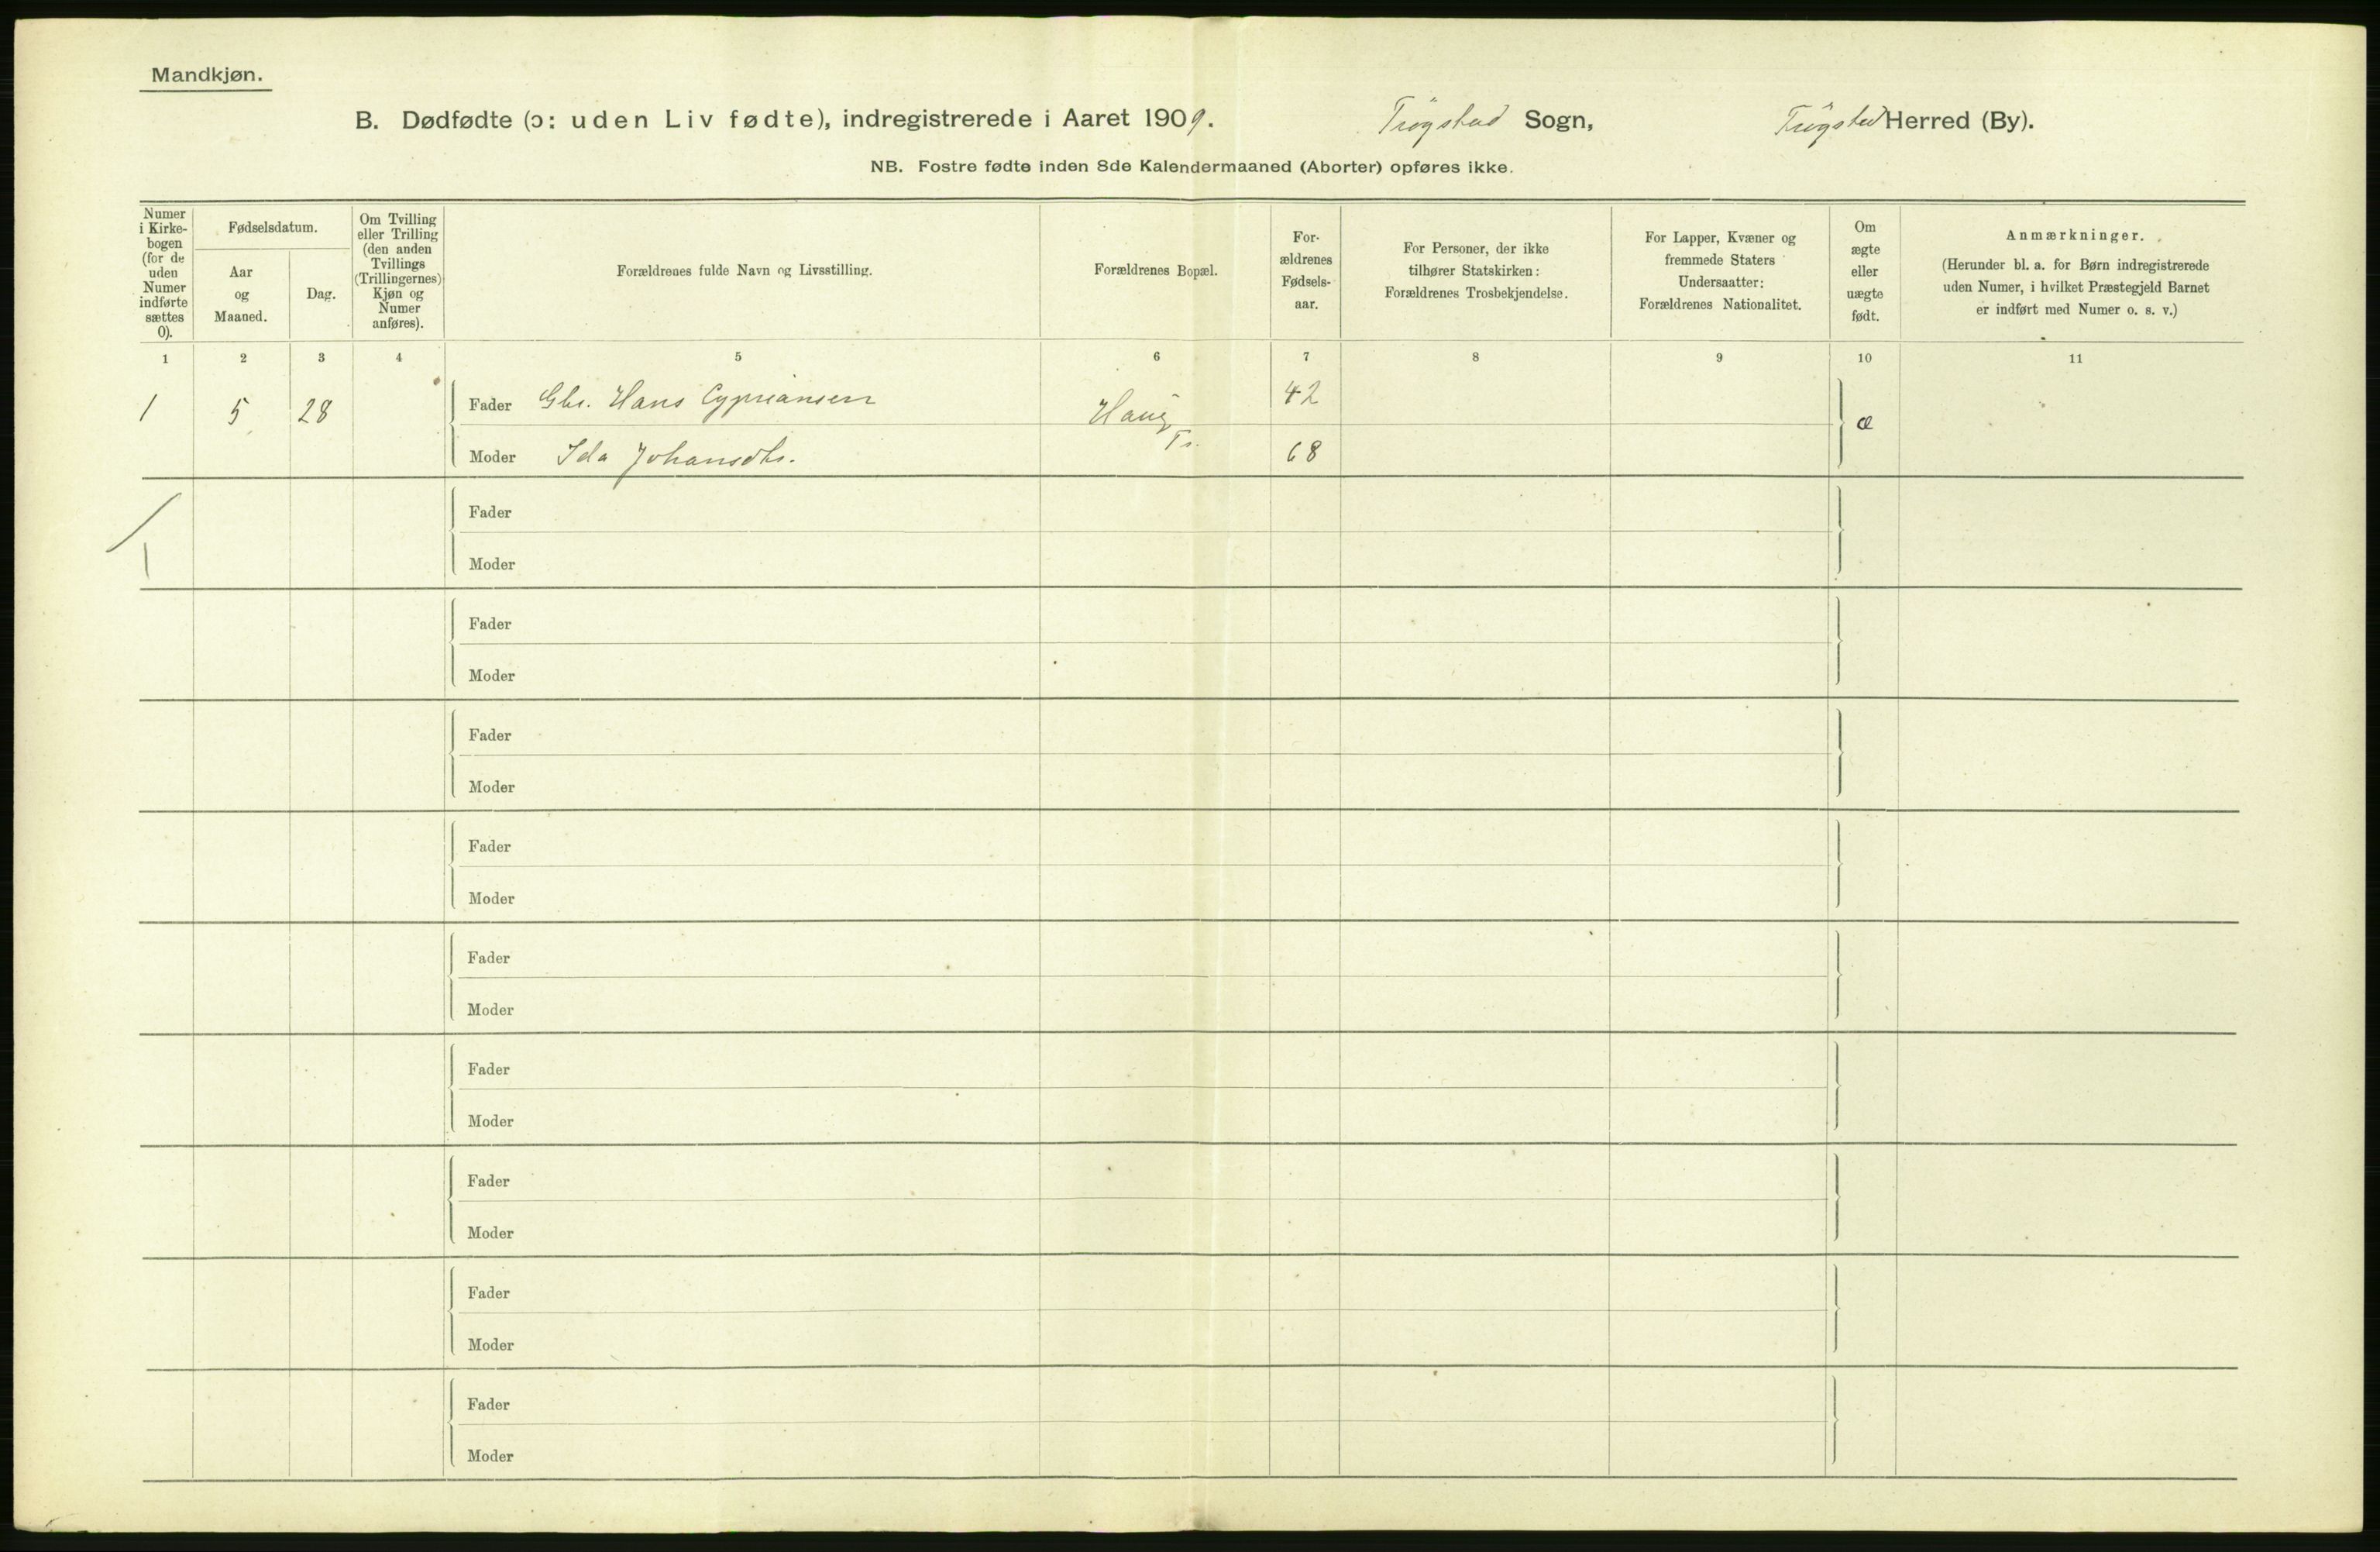 Mandkjøn.
B. Dødfødte (ɔ: uden Liv fødte), indregistrerede i Aaret 1909. Trögstad Sogn, Trögstad Herred (By).
NB. Fostre fødte inden 8de Kalendermaaned (Aborter) opføres ikke.
Numer
i Kirke-
bogen
(for de
uden
Numer
indførte
sættes
0).
Fødselsdatum.
Aar
og
Maaned.
Dag.
Om Tvilling
eller Trilling
(den anden
Tvillings
(Trillingernes)
Kjøn og
Numer
anføres).
Forældrenes fulde Navn og Livsstilling.
Forældrenes Bopæl.
For-
ældrenes
Fødsels-
aar.
For Personer, der ikke
tilhører Statskirken:
Forældrenes Trosbekjendelse.
For Lapper, Kvæner og
fremmede Staters
Undersaatter:
Forældrenes Nationalitet.
Om
ægte
eller
uægte
født.
Anmærkninger.
(Herunder bl. a. for Børn indregistrerede
uden Numer, i hvilket Præstegjeld Barnet
er indført med Numer o. s. v.)
1 2 3 4 5 6 7 8 9 10 11
1 5 28 Fader Gbr. Hans Cypriansen Haug 42 æ
Moder Ida Johansdtr. Tr. 68
Fader
1
Moder
Fader
Moder
Fader
Moder
Fader
Moder
Fader
Moder
Fader
Moder
Fader
Moder
Fader
Moder
Fader
Moder